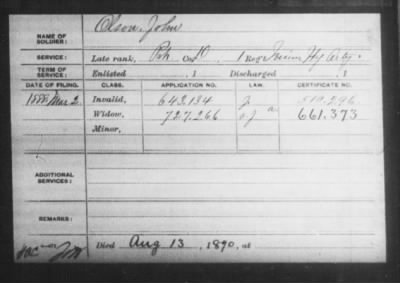 NAME OF SOLDIER: Olson, John
SERVICE: Late rank, Pvt Co. D, 1 Reg't Minn Hy Arty.
TERM OF SERVICE: Enlisted , 1 Discharged , 1
DATE OF FILING. CLASS. APPLICATION NO. LAW. CERTIFICATE NO.
1888 Mar 2. Invalid, 643,134 519,296
Widow, 727,266 661,373
Minor,
ADDITIONAL SERVICES:
REMARKS:
Died Aug 13, 1890, at